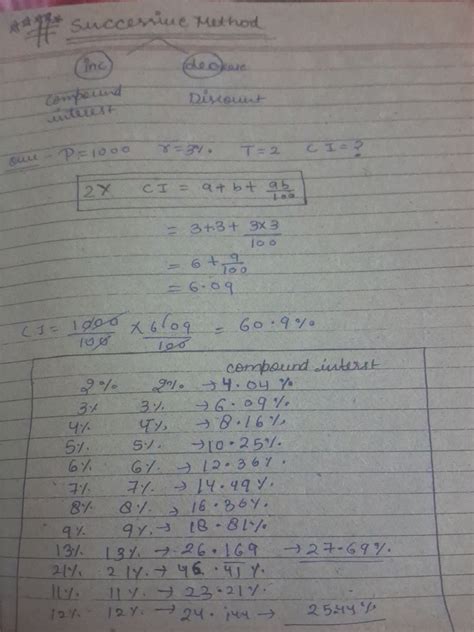 **** # Successive Method
inc decrease
compound interest Discount
Ques - P=1000 r=3% T=2 CI=?
2X CI = a+b+ ab/100
= 3+3+ 3×3/100
= 6+ 9/100
= 6.09
CI = 1000/100 × 609/100 = 60.9%
compound interst
2% 2% → 4.04%
3% 3% → 6.09%
4% 4% → 8.16%
5% 5% → 10.25%
6% 6% → 12.36%
7% 7% → 14.49%
8% 8% → 16.36%
9% 9% → 18.81%
13% 13% → 26.169 → 27.69%
21% 21% → 46.41%
11% 11% → 23.21%
12% 12% → 24.144 → 25.44%